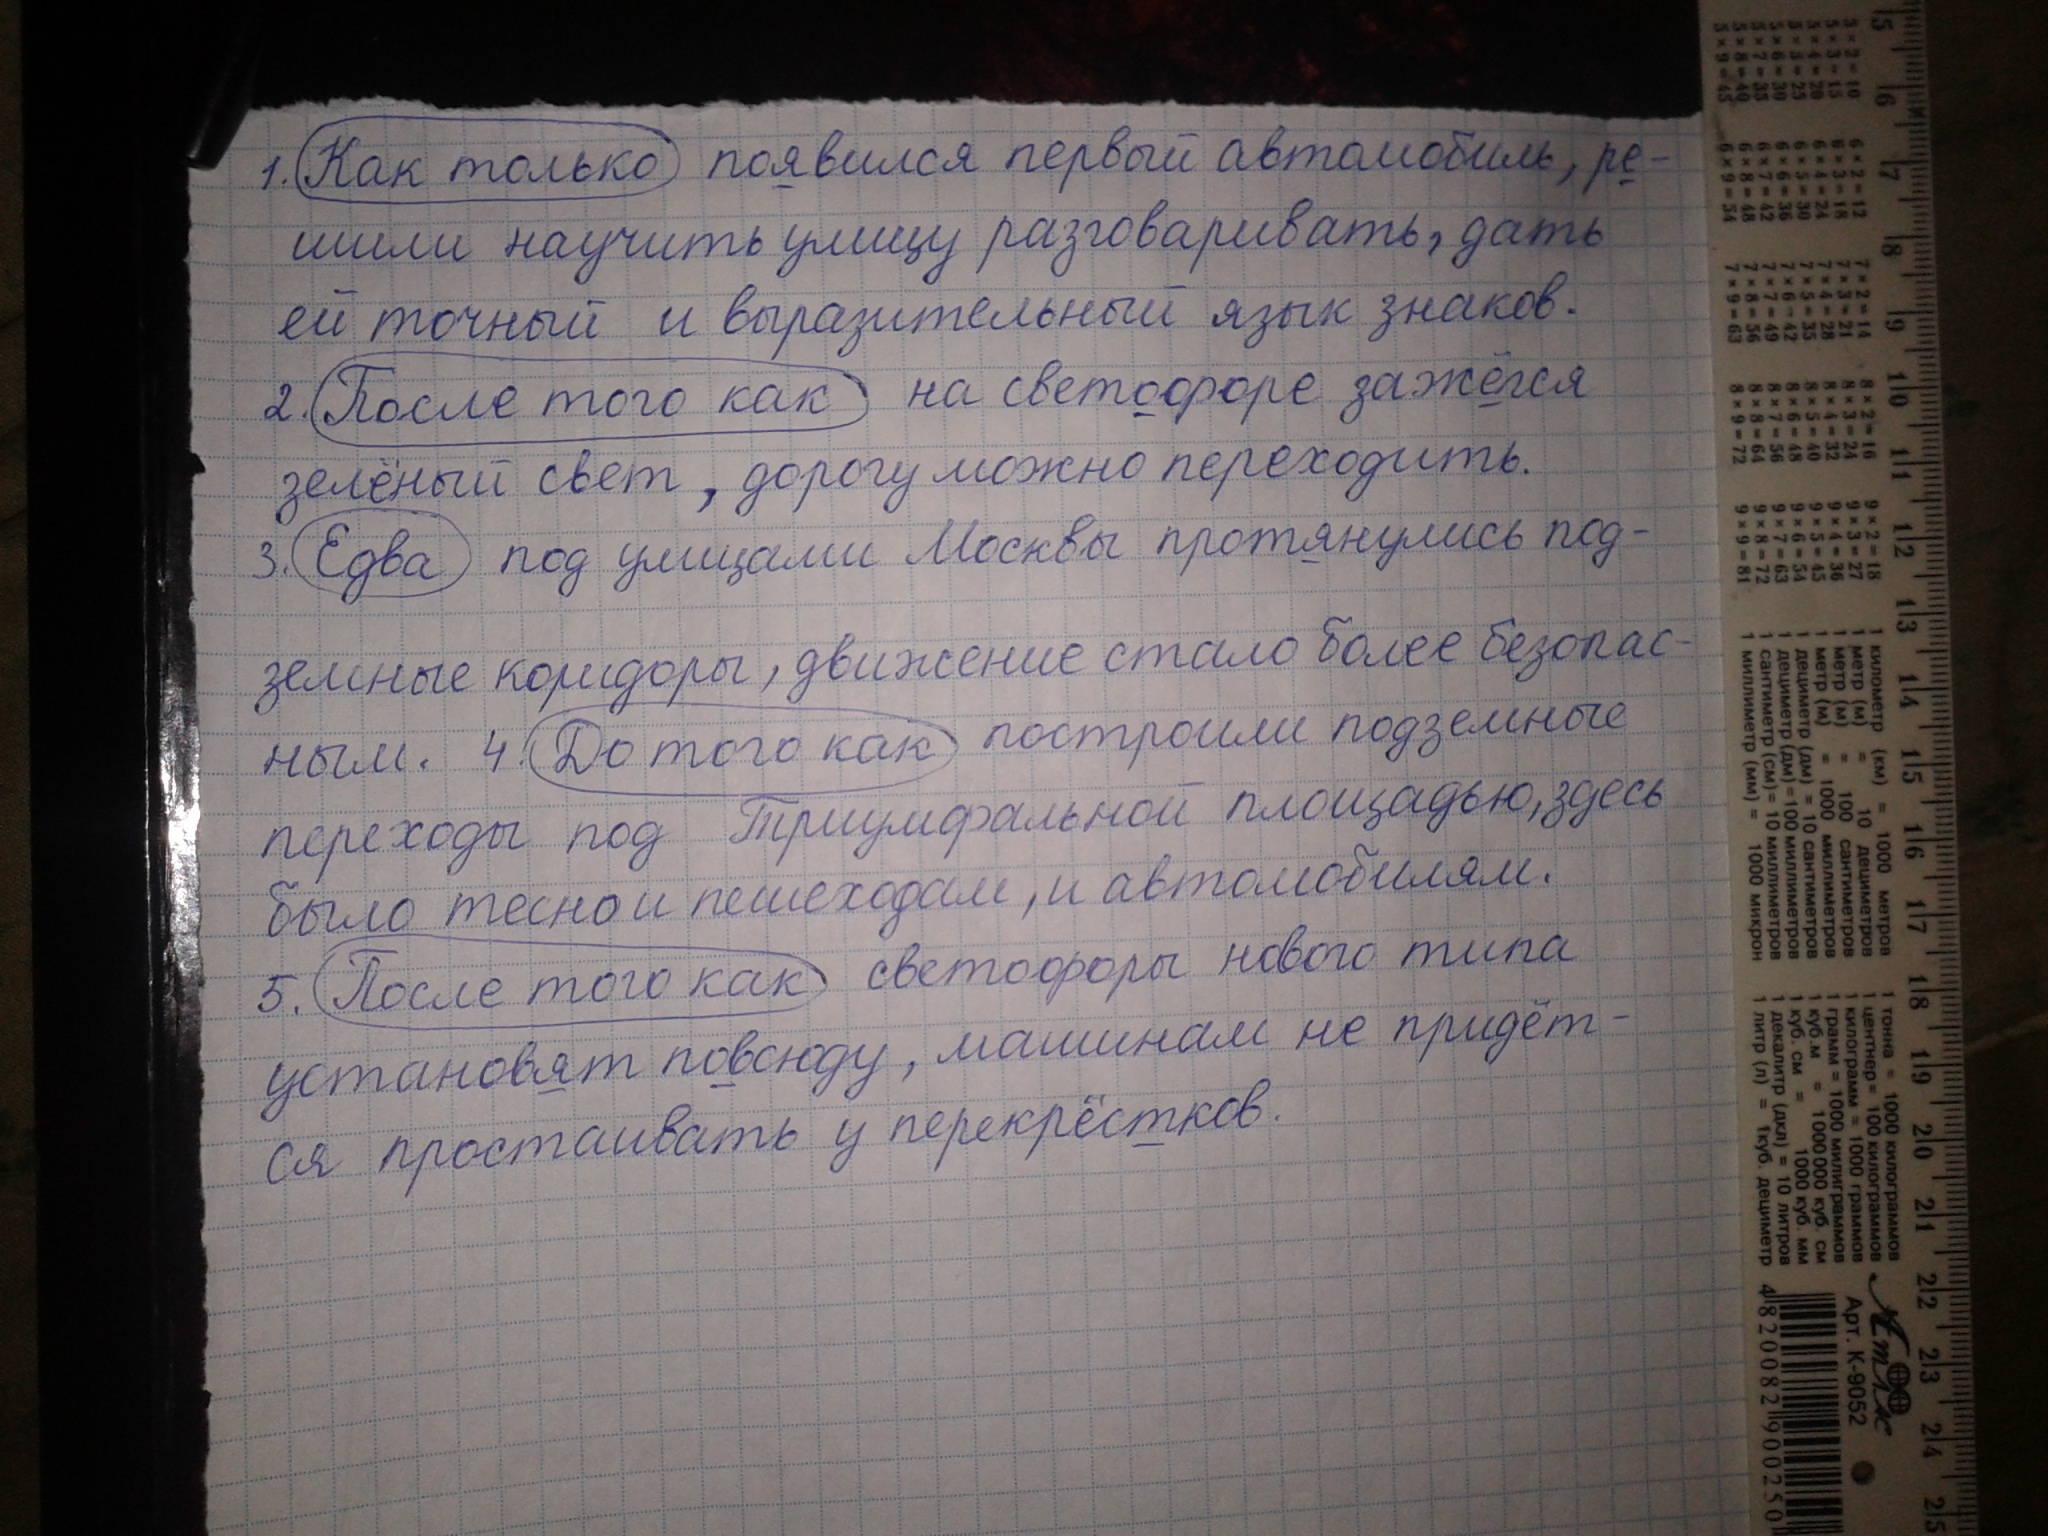 1. Как только появился первый автомобиль, ре-
шили научить улицу разговаривать, дать
ей точный и выразительный язык знаков.
2. После того как на светофоре зажёгся
зелёный свет, дорогу можно переходить.
3. Едва под улицами Москвы протянулись под-
земные коридоры, движение стало более безопас-
ным. 4. До того как построили подземные
переходы под Триумфальной площадью, здесь
было тесно и пешеходам, и автомобилям.
5. После того как светофоры нового типа
установят повсюду, машинам не придёт-
ся простаивать у перекрёстков.
5 6 7 8 9 10 11 12 13 14 15 16 17 18 19 20 21 22 23 24 25
5 × 2 = 10
5 × 3 = 15
5 × 4 = 20
5 × 5 = 25
5 × 6 = 30
5 × 7 = 35
5 × 8 = 40
5 × 9 = 45
6 × 2 = 12
6 × 3 = 18
6 × 4 = 24
6 × 5 = 30
6 × 6 = 36
6 × 7 = 42
6 × 8 = 48
6 × 9 = 54
7 × 2 = 14
7 × 3 = 21
7 × 4 = 28
7 × 5 = 35
7 × 6 = 42
7 × 7 = 49
7 × 8 = 56
7 × 9 = 63
8 × 2 = 16
8 × 3 = 24
8 × 4 = 32
8 × 5 = 40
8 × 6 = 48
8 × 7 = 56
8 × 8 = 64
8 × 9 = 72
9 × 2 = 18
9 × 3 = 27
9 × 4 = 36
9 × 5 = 45
9 × 6 = 54
9 × 7 = 63
9 × 8 = 72
9 × 9 = 81
1 километр (км) = 1000 метров
1 метр (м) = 10 дециметров
1 метр (м) = 100 сантиметров
1 метр (м) = 1000 миллиметров
1 дециметр (дм) = 10 сантиметров
1 дециметр (дм) = 100 миллиметров
1 сантиметр (см) = 10 миллиметров
1 миллиметр (мм) = 1000 микрон
1 тонна = 1000 килограммов
1 центнер = 100 килограммов
1 килограмм = 1000 граммов
1 грамм = 1000 милиграммов
1 куб.м = 1000000 куб. см
1 куб. см = 1000 куб. мм
1 декалитр (дкл) = 10 литров
1 литр (л) = 1куб. дециметр
Атлас
Арт. К-9052
4820082900250